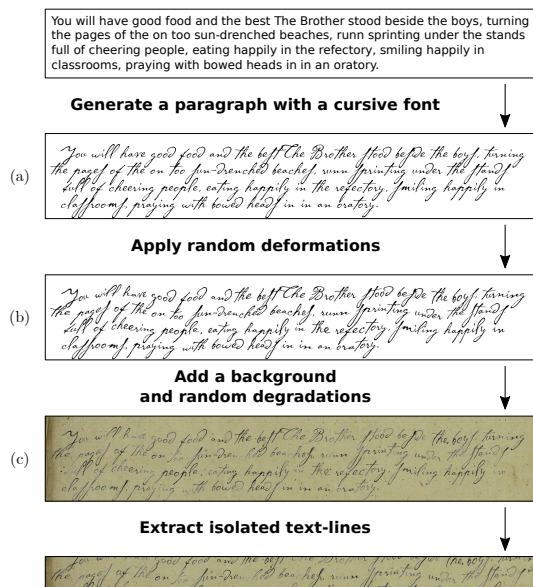 You will have good food and the best The Brother stood beside the boys, turning
the pages of the on too sun-drenched beaches, runn sprinting under the stands
full of cheering people, eating happily in the refectory, smiling happily in
classrooms, praying with bowed heads in in an oratory.
Generate a paragraph with a cursive font
(a)
You will have good food and the best The Brother stood beside the boys, turning
the pages of the on too sun-drenched beaches, runn sprinting under the stands
full of cheering people, eating happily in the refectory, smiling happily in
classrooms, praying with bowed heads in in an oratory.
Apply random deformations
(b)
You will have good food and the best The Brother stood beside the boys, turning
the pages of the on too sun-drenched beaches, runn sprinting under the stands
full of cheering people, eating happily in the refectory, smiling happily in
classrooms, praying with bowed heads in in an oratory.
Add a background
and random degradations
(c)
You will have good food and the best The Brother stood beside the boys, turning
the pages of the on too sun-drenched beaches, runn sprinting under the stands
full of cheering people, eating happily in the refectory, smiling happily in
classrooms, praying with bowed heads in in an oratory.
Extract isolated text-lines
the pages of the on too sun-drenched beaches, runn sprinting under the stands